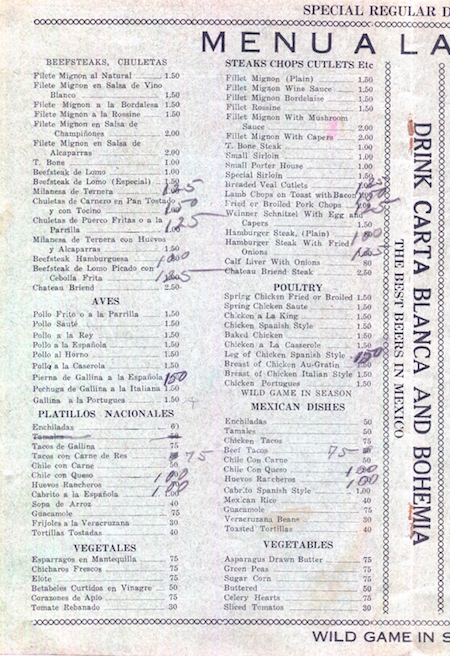 SPECIAL REGULAR D
MENU A LA
BEEFSTEAKS, CHULETAS
Filete Mignon al Natural 1.50
Filete Mignon en Salsa de Vino
Blanco 1.50
Filete Mignon a la Bordalesa 1.50
Filete Mignon a la Rossine 1.50
Filete Mignon en Salsa de
Champiñones 2.00
Filete Mignon en Salsa de
Alcaparras 2.00
T. Bone 1.00
Beefsteak de Lomo 1.00
Beefsteak de Lomo (Especial)
Milanesa de Ternera 1.25
Chuletas de Carnero en Pan Tostado
y con Tocino
Chuletas de Puerco Fritas o a la
Parrilla 1.25
Milanesa de Ternera con Huevos
y Alcaparras 1.50
Beefsteak Hamburguesa 100
Beefsteak de Lomo Picado con
Cebolla Frita 125
Chateau Briend 2.50
AVES
Pollo Frito o a la Parrilla 1.50
Pollo Sauté 1.50
Pollo a la Rey 1.50
Pollo a la Española 1.50
Pollo al Horno 1.50
Pollo a la Caserola 1.50
Pierna de Gallina a la Española 150
Pechuga de Gallina a la Italiana 1.50
Gallina a la Portugues 1.50
PLATILLOS NACIONALES
Enchiladas 60
Tacos de Gallina 75
Tacos con Carne de Res 75
Chile con Carne 50
Chile con Queso 100
Huevos Rancheros 100
Cabrito a la Española 1.00
Sopa de Arroz 40
Guacamole 75
Frijoles a la Veracruzana 30
Tortillas Tostadas 40
VEGETALES
Esparragos en Mantequilla 75
Chicharos Frescos 75
Elote 75
Betabeles Curtidos en Vinagre 50
Corazones de Apio 75
Tomate Rebanado 30
STEAKS CHOPS CUTLETS Etc
Fillet Mignon (Plain) 1.50
Fillet Mignon Wine Sauce 1.50
Fillet Mignon Bordelaise 1.50
Fillet Rossine 1.50
Fillet Mignon With Mushroom
Sauce 2.00
Fillet Mignon With Capers 2.00
T. Bone Steak 1.00
Small Sirloin 1.00
Small Porter House 1.00
Special Sirloin 1.50
Breaded Veal Cutlets
Lamb Chops on Toast with Bacon
Fried or Broiled Pork Chops
Weinner Schnitzel With Egg and
Capers 1.50
Hamburger Steak, (Plain) 100
Hamburger Steak With Fried
Onions 125
Calf Liver With Onions 80
Chateau Briend Steak 2.50
POULTRY
Spring Chicken Fried or Broiled 1.50
Spring Chicken Saute 1.50
Chicken a La King 1.50
Chicken Spanish Style 1.50
Baked Chicken 1.50
Chicken a La Casserole 1.50
Leg of Chicken Spanish Style 150
Breast of Chicken Au-Gratin 1.50
Breast of Chicken Italian Style 1.50
Chicken Portugues 1.50
WILD GAME IN SEASON
MEXICAN DISHES
Enchiladas 50
Tamales 50
Chicken Tacos 75
Beef Tacos 75
Chile Con Carne 50
Chile Con Queso 100
Huevos Rancheros 100
Cabrito Spanish Style 1.00
Mexican Rice 40
Guacamole 75
Veracruzana Beans 30
Toasted Tortillas 40
VEGETABLES
Asparagus Drawn Butter 75
Green Peas 75
Sugar Corn 75
Buttered 50
Celery Hearts 75
Sliced Tomatos 30
DRINK CARTA BLANCA AND BOHEMIA
THE BEST BEERS IN MEXICO
WILD GAME IN S